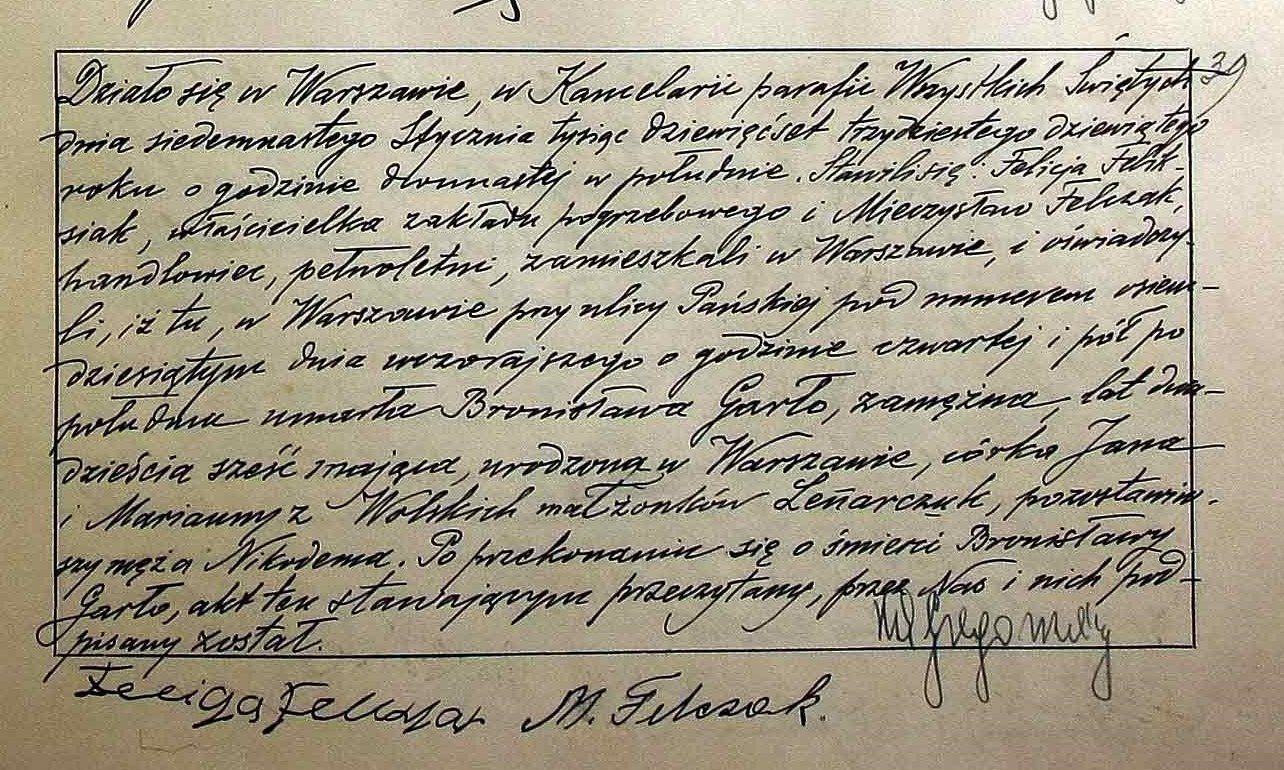 Działo się w Warszawie, w Kancelarii parafii Wszystkich Świętych 39
dnia siedemnastego Stycznia tysiąc dziewięćset trzydziestego dziewiątego
roku o godzinie dwunastej w południe. Stawili się: Felicja Felik-
siak, właścicielka zakładu pogrzebowego i Mieczysław Felczak,
handlowiec, pełnoletni, zamieszkali w Warszawie, i oświadczy-
li, iż tu, w Warszawie przy ulicy Pańskiej pod numerem osiem-
dziesiątym dnia wczorajszego o godzinie czwartej i pół po
południu umarła Bronisława Garło, zamężna, lat dwa-
dzieścia sześć mająca, urodzona w Warszawie, córka Jana
i Marianny z Wolskich małżonków Leńarczuk, pozostawiw-
szy męża Nikodema. Po przekonaniu się o śmierci Bronisławy
Garło, akt ten stawającym przeczytany, przez Nas i nich pod-
pisany został.
M. Felczak.